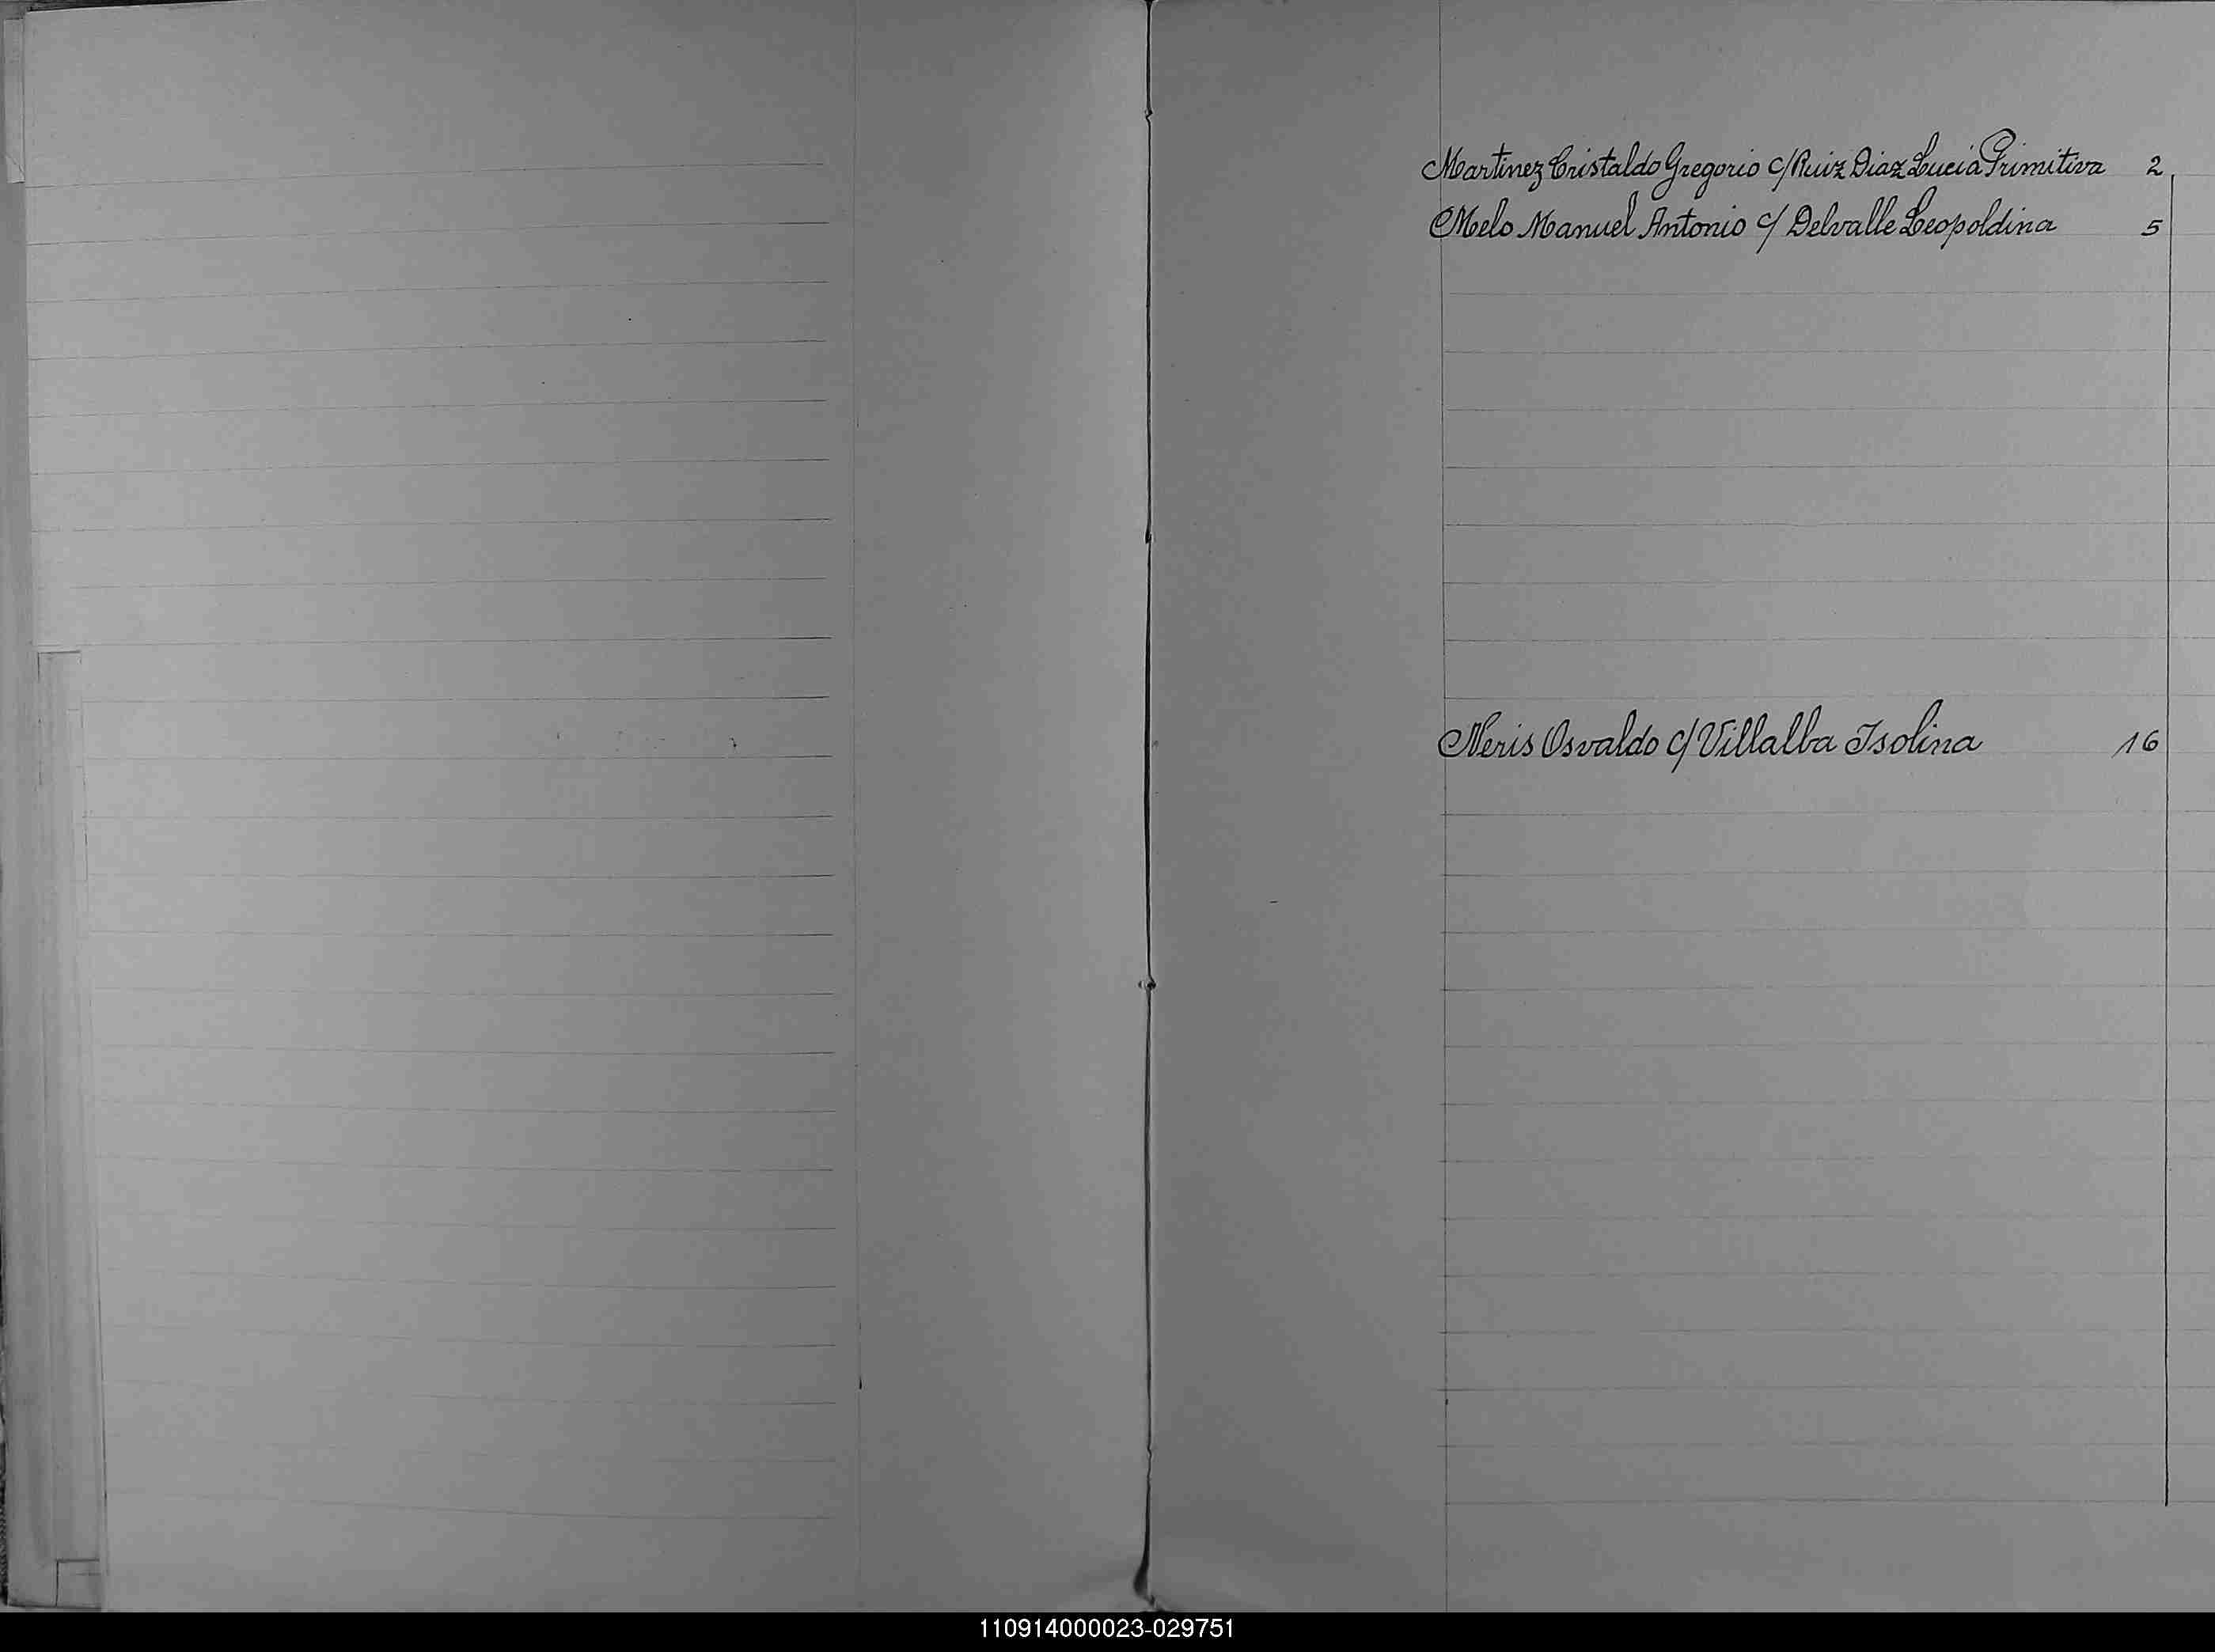 Martinez Cristaldo Gregorio c/ Ruiz Diaz Lucia Primitiva 2
Melo Manuel Antonio c/ Delvalle Leopoldina 5
Neris Osvaldo c/ Villalba Isolina 16
110914000023-029751